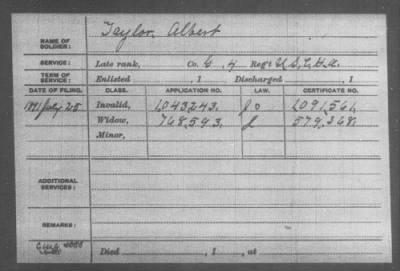 NAME OF SOLDIER: Taylor, Albert
SERVICE: Late rank, Co. G, 4 Reg't U.S.C.H.A.
TERM OF SERVICE: Enlisted , 1 Discharged , 1
DATE OF FILING. CLASS. APPLICATION NO. LAW. CERTIFICATE NO.
1891 July 25 Invalid, 1,043,243. 1,091,561.
Widow, 768,593. 579,368.
Minor,
ADDITIONAL SERVICES:
REMARKS:
Died , 1 , at